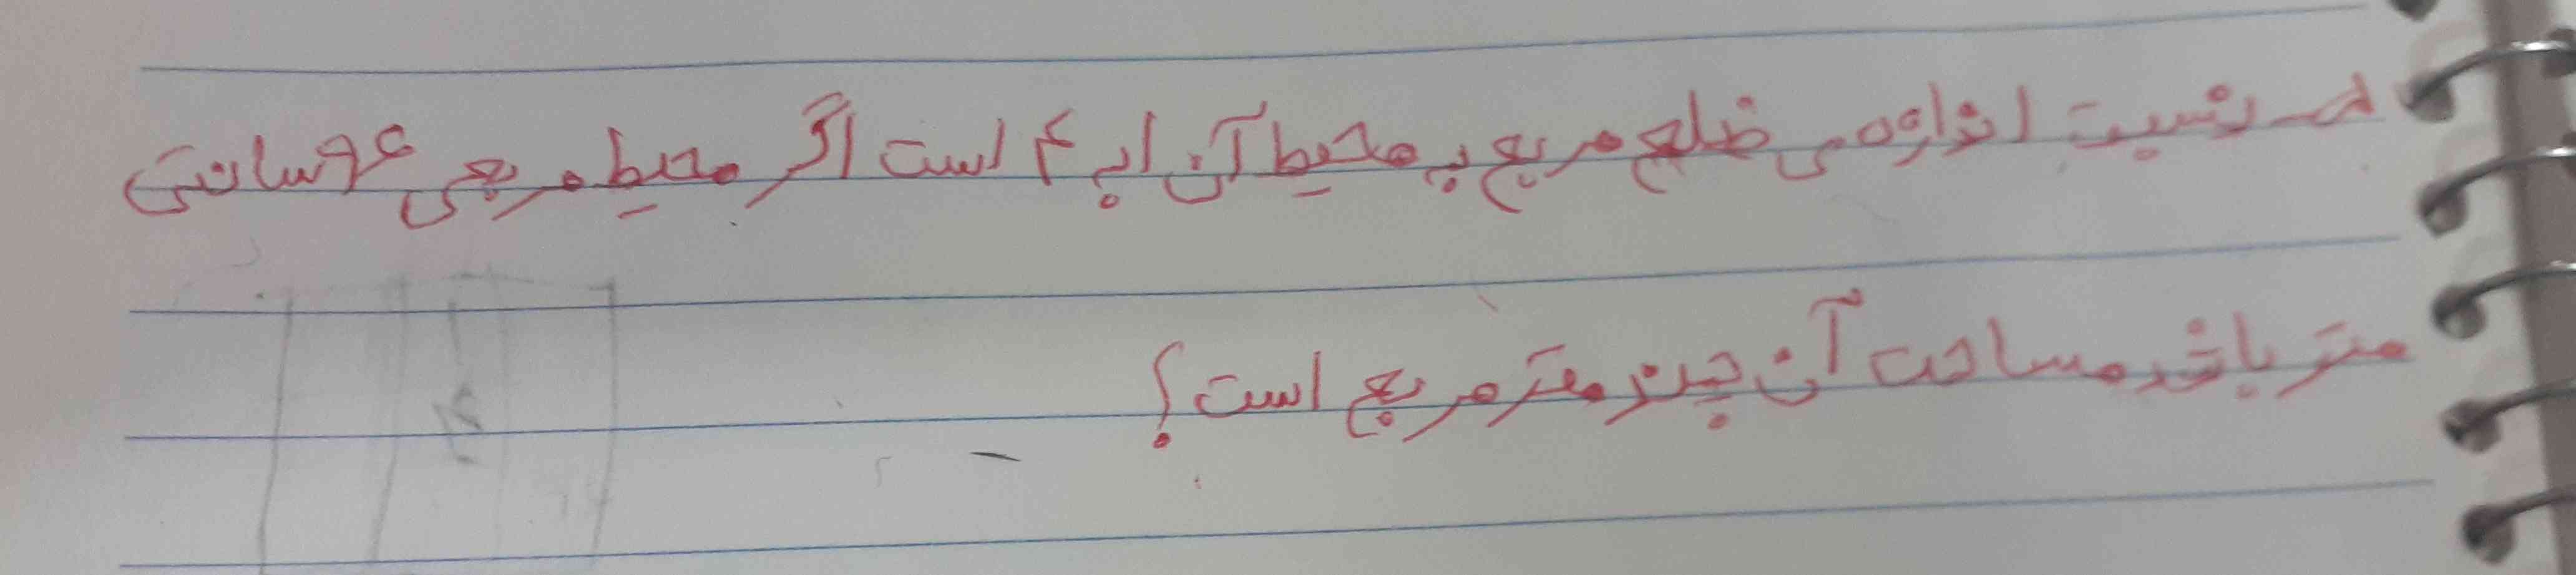 نسبت اندازه ی ضلع مربع به محیط آن ۱ به ۴ است اگر محیط مربعی ۶۴ سانتی
متر باشد مساحت آن چند متر مربع است؟